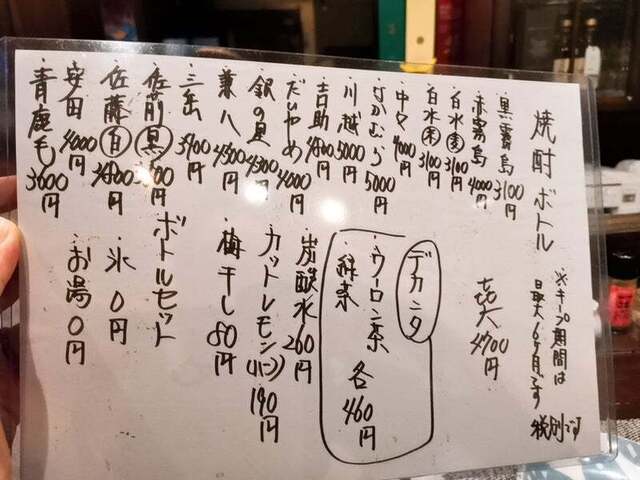 焼酎ボトル
※キープ期間は
最大6ヶ月です
税別です
・黒霧島 3100円
・赤霧島 4000円
・白水(麦) 3100円
・白水(米) 3100円
・中々 4000円
・なかむら 5000円
・川越 5000円
・吉助 4800円
・だいやめ 4000円
・銀の星 4300円
・兼八 4500円
・三岳 3900円
・佐藤(黒)
・佐藤(白)
・安田 4000円
・青鹿毛 3600円
・㐂六 4700円
デカンタ
・ウーロン茶
・緑茶
各460円
・炭酸水 260円
・カットレモン(1/2コ) 190円
・梅干し 80円
・ボトルセット
・氷 0円
・お湯 0円